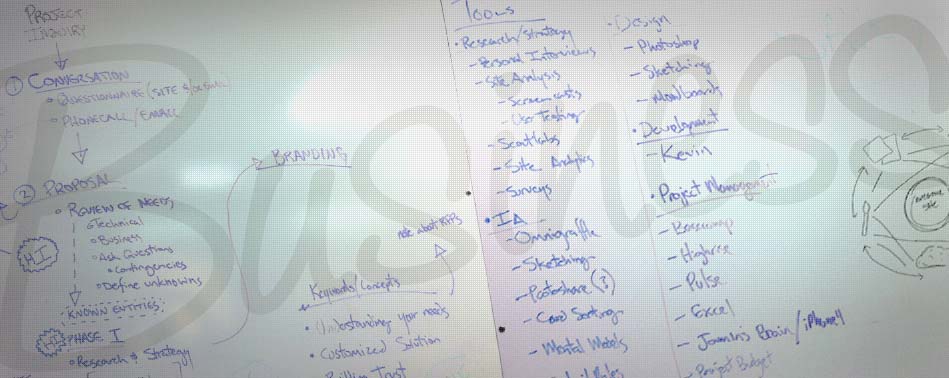 Business
PROJECT
INQUIRY
① CONVERSATION
• QUESTIONNAIRE (SITE &
• PHONECALL / EMAIL
② PROPOSAL
• REVIEW OF NEEDS
Technical
• Business
• Ask Questions
• Contingencies
• Define unknowns
KNOWN ENTITIES
PHASE I
• Research & Strategy
BRANDING
note about RFPs
Keywords/Concepts
• Understanding your needs
• Customized Solution
Building Trust
TOOLS
• Research/Strategy
- Personal Interviews
- Site Analysis
- Screencasts
- User Testing
- Scoutlabs
- Site Analytics
- Surveys
• IA
- Omnigraffle
- Sketching
- Protoshare (?)
- Card Sorting
- Mental Models
• Design
- Photoshop
- Sketching
- Moodboards
• Development
- Kevin
• Project Management
- Basecamp
- Highrise
- Pulse
- Excel
- Brain/iPhone4
- Project Budget